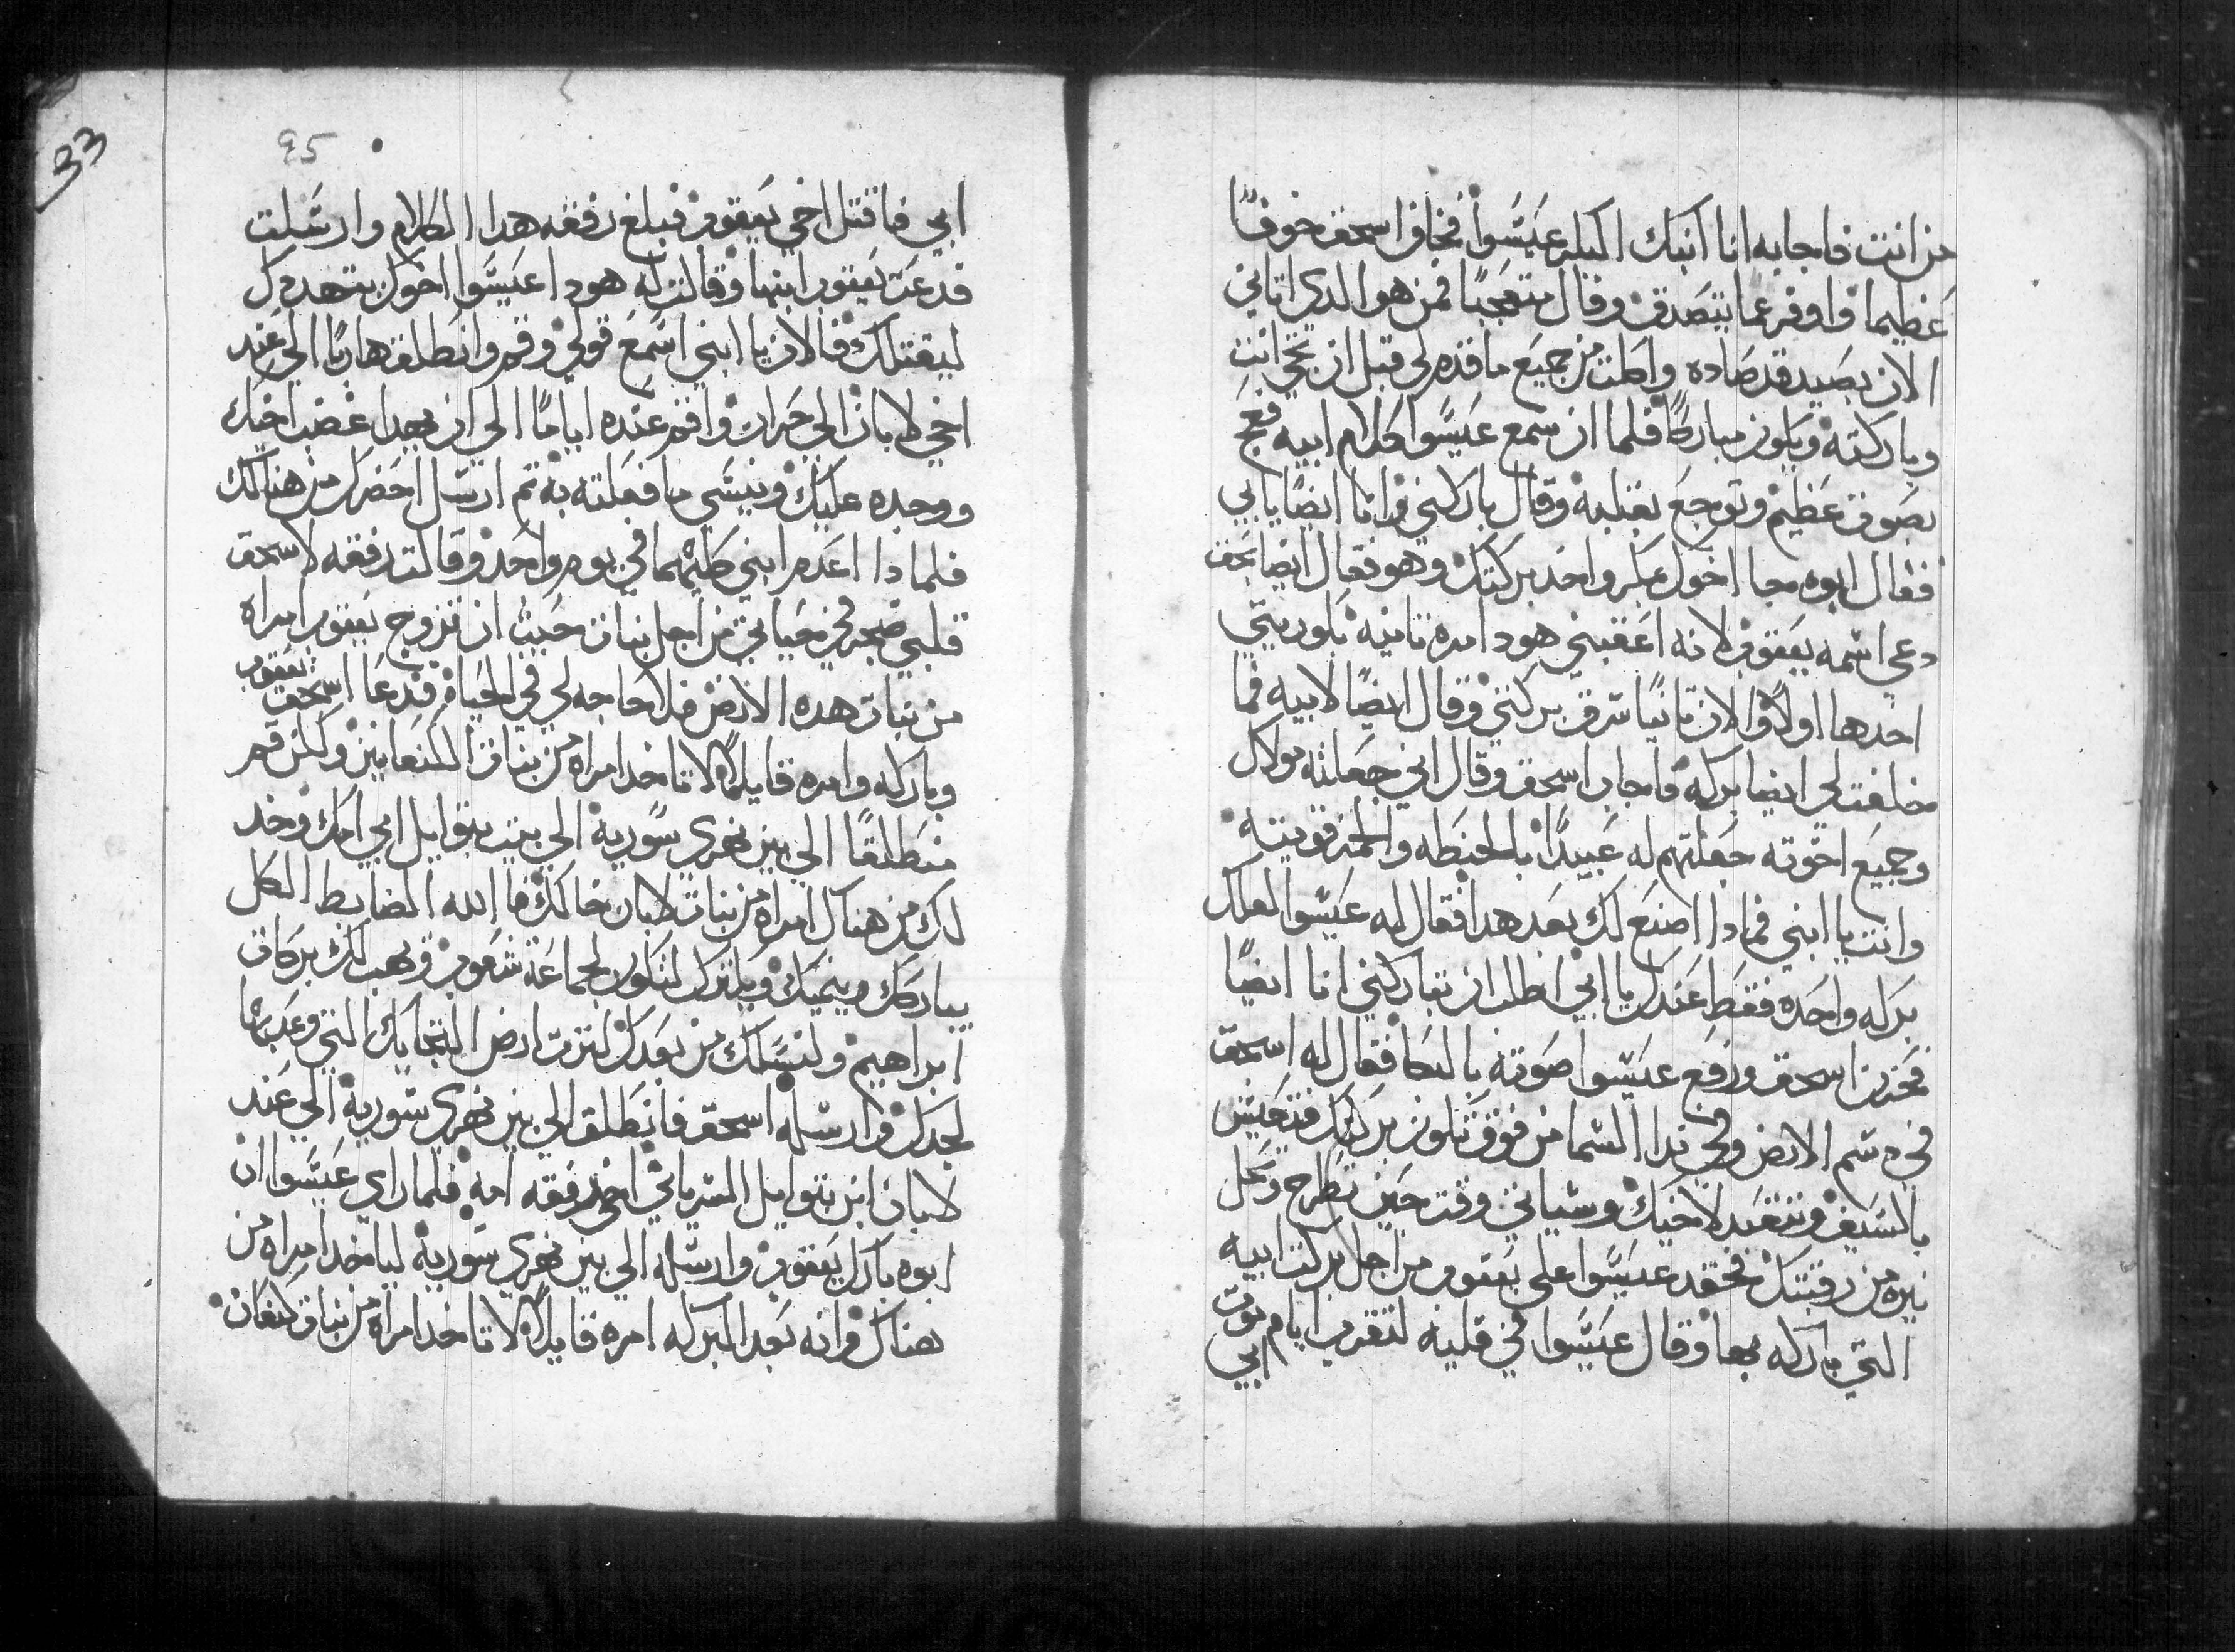 من انت فاجابه انا ابنك البكر عيسوا فخاف اسحق خوفًا
عظيما واوفر عما يتصدق وقال متعجبًا فمن هوا الدي اتاني
الان بصيد قد صاده واكلت من جميع ما قدم لي قبل ان تجي انت
وباركته ويكون مباركًا فلما ان سمع عيسوا كلام ابيه فعج
بصوت عظيم وتوجع بقلبه وقال باركني وانا ايضًا يا ابي
فقال ابوه مجا اخوك بمكر واخد بركتك وهو فقال ايضا بحق
دعي اسمه يعقوب لانه اعقبني هودا مره تانيه بكوريتي
اخدها اولًا والان تانيًا سرق بركتي وقال ايضًا لابيه فما
خلفت لي ايضا بركه فاجاب اسحق وقال اني جعلته مولاك
وجميع اخوته جعلتهم له عبيدًا بالحنطه والخمر قويته
وانت يا ابني فمادا اصنع لك بعد هدا فقال له عيسوا العلك
بركه واحده فقط عندك يا ابي اطلب ان تباركني انا ايضًا
فحزن اسحق ورفع عيسوا صوته بالبكا فقال له اسحق
في دسم الارض وفي ندا السما من فوق تكون بركتك فتعيش
بالسيف وتتعبد لاخيك وسياتي وقت حين تطرح وتحل
نيره من رقبتك فحقد عيسوا على يعقوب من اجل بركت ابيه
التي باركه بها وقال عيسوا في قلبه لتقرب ايام موت ابي
33
95
ابي فاقتل اخي يعقوب فبلغ رفقه هدا الكلام وارسلت
فدعت يعقوب ابنها وقالت له هودا عيسوا اخوك يتهددك
ليقتلك فالان يا ابني اسمع قولي وقم وانطلق هاربًا الي عند
اخي لابان الي حران واقم عنده ايامًا الي ان يهدا غضب اخيك
ووجده عليك وينسي ما فعلته به تم ارسل احضرك من هنالك
فلمادا اعدم ابني كليهما في يوم واحد وقالت رفقه لاسحق
قلبي ضجر في حياتي من اجل بنات حيث ان تزوج يعقوب امراه
من بنات هده الارض فلا حاجه لي في الحياه فدعا اسحق يعقوب
وباركه وامره قايلًا لا تاخد امراه من بنات الكنعانيين ولكن قم
منطلقًا الي بين نهري سورية الي بيت بتوايل ابي امك وخد
لك من هناك امراه من بنات لابان خالك فاالله الضابط الكل
يباركك وينميك ويكترك لتكون لجماعة شعوب ويهب لك بركات
ابراهيم ولنسلك من بعدك لترت ارض التجايك التي وعد بها
لجدك وارسله اسحق فانطلق الي بين نهري سورية الي عند
لابان ابن بتوايل السرياني اخو رفقه امه فلما راي عيسوا ان
ابوه بارك يعقوب وارسله الي بين نهري سورية لياخد امراه من
هناك وانه بعد البركه امره قايلًا لا تاخد امراه من بنات كنعان